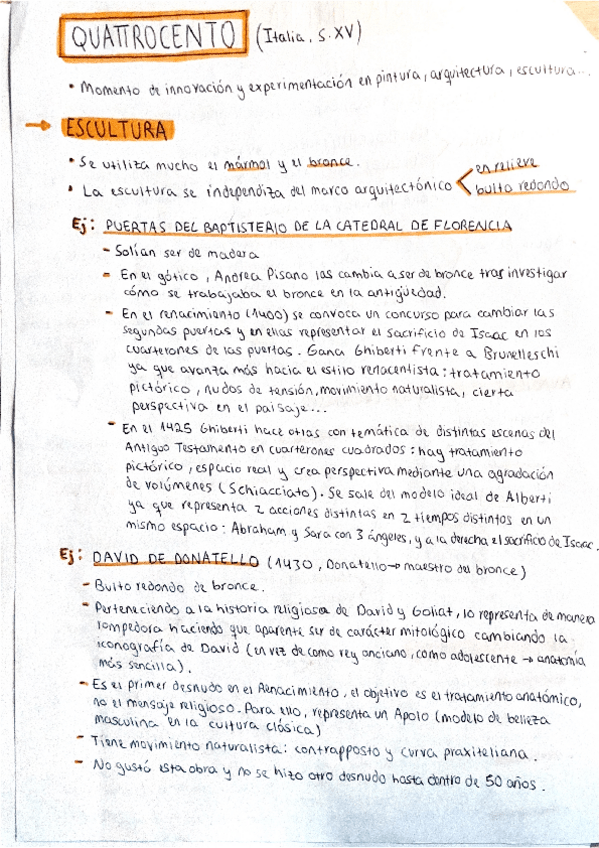 QUATTROCENTO (Italia, S.XV)
• Momento de innovación y experimentación en pintura, arquitectura, escultura...
→ ESCULTURA
• Se utiliza mucho el mármol y el bronce.
• La escultura se independiza del marco arquitectónico < en relieve
bulto redondo
Ej: PUERTAS DEL BAPTISTERIO DE LA CATEDRAL DE FLORENCIA
- Solían ser de madera
- En el gótico, Andrea Pisano las cambia a ser de bronce tras investigar
cómo se trabajaba el bronce en la antigüedad.
- En el renacimiento (1400) se convoca un concurso para cambiar las
segundas puertas y en ellas representar el sacrificio de Isaac en los
cuarterones de las puertas. Gana Ghiberti frente a Brunelleschi
ya que avanza más hacia el estilo renacentista: tratamiento
pictórico, nudos de tensión, movimiento naturalista, cierta
perspectiva en el paisaje...
- En el 1425 Ghiberti hace otras con temática de distintas escenas del
Antiguo Testamento en cuarterones cuadrados: hay tratamiento
pictórico, espacio real y crea perspectiva mediante una agradación
de volúmenes (Schiacciato). Se sale del modelo ideal de Alberti
ya que representa 2 acciones distintas en 2 tiempos distintos en un
mismo espacio: Abraham y Sara con 3 ángeles, y a la derecha el sacrificio de Isaac.
Ej: DAVID DE DONATELLO (1430, Donatello → maestro del bronce)
- Bulto redondo de bronce.
- Perteneciendo a la historia religiosa de David y Goliat, lo representa de manera
rompedora haciendo que aparente ser de carácter mitológico cambiando la
iconografía de David (en vez de como rey anciano, como adolescente → anatomía
más sencilla).
- Es el primer desnudo en el Renacimiento, el objetivo es el tratamiento anatómico,
no el mensaje religioso. Para ello, representa un Apolo (modelo de belleza
masculina en la cultura clásica)
- Tiene movimiento naturalista: contrapposto y curva praxiteliana.
- No gustó esta obra y no se hizo otro desnudo hasta dentro de 50 años.